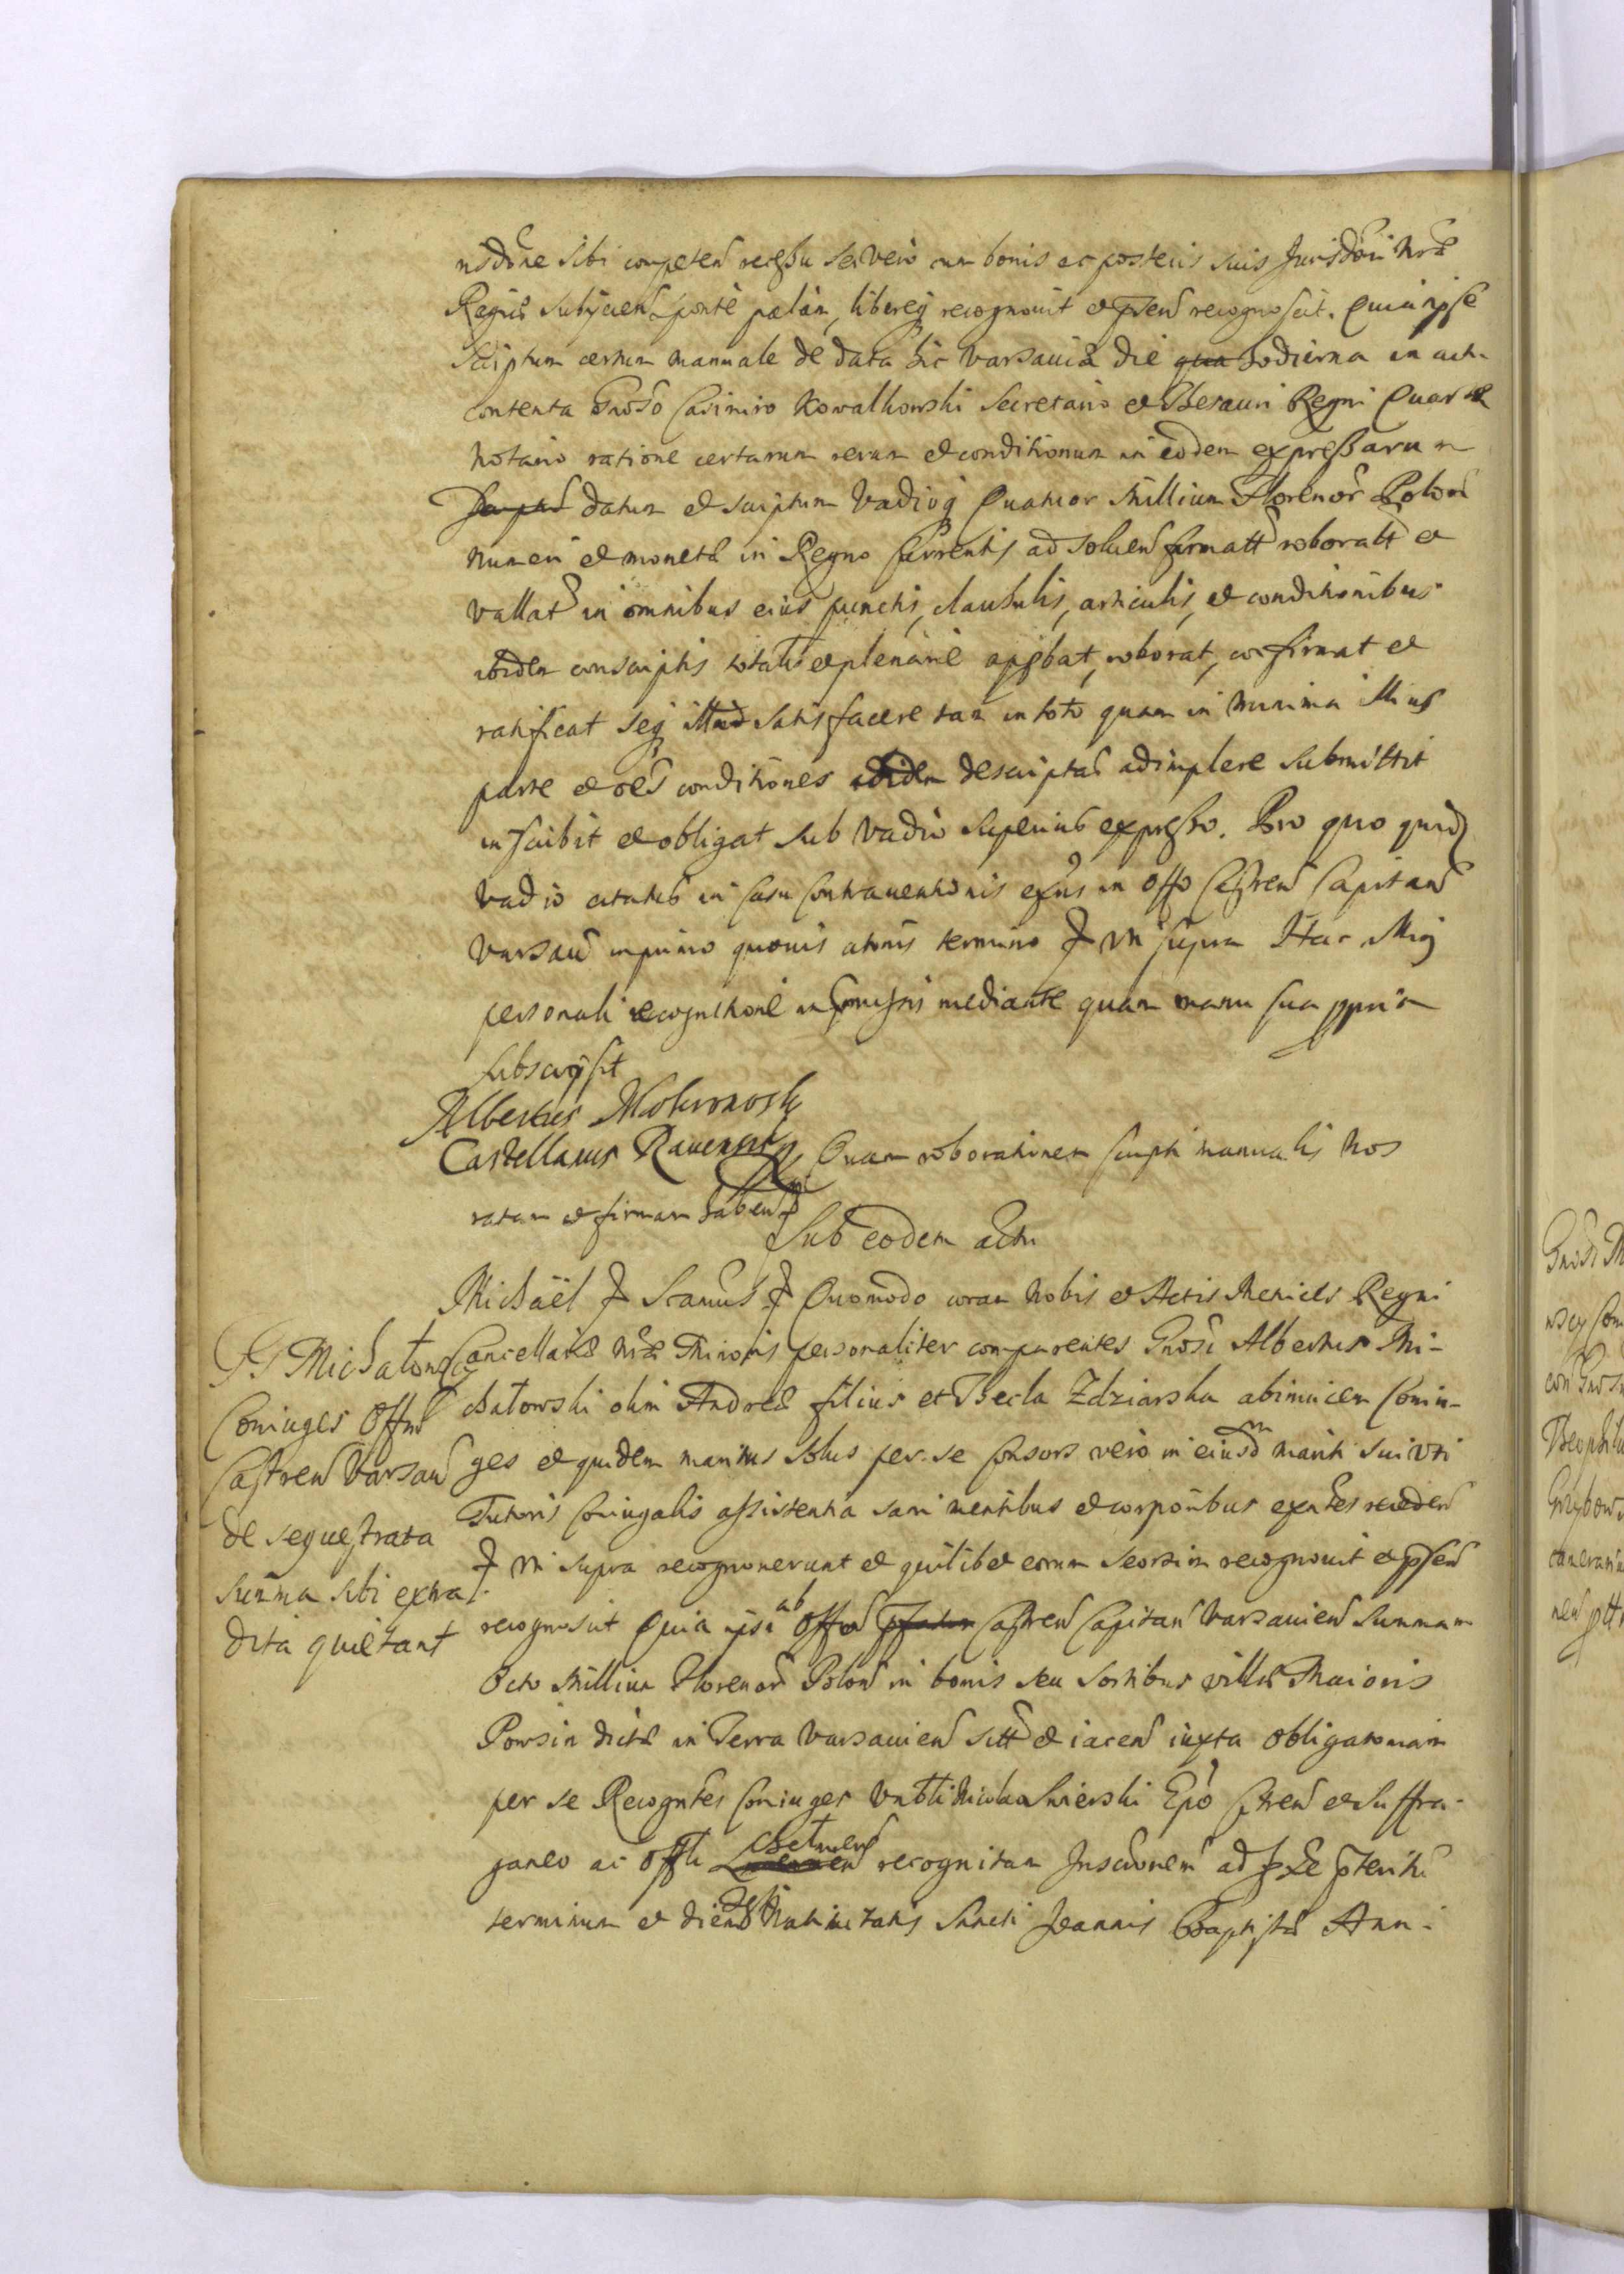 risdone sibi competen recessu se vero cum bonis ac posteris suis Jurisdoni Nræ
Regiæ subijcien sponte palam, libereq recognovit et pñen recognoscit. Quia ipse
Scriptum certum manuale de data hic Varsaviæ die qua hodierna in acti.
contenta Gnoso Casimiro Kowalkowski Secretario et Thesauri Regni Quartæ
Notario ratione certarum rerum et conditionum in eodem expressarum
datum et scriptum Vadioq Quatuor Millium Florenor Polon
numeri et monetæ in Regno currentis ad solven firmatt roboratt et
vallat in omnibus eius punctis, clausulis, articulis, et conditionibus
ibidem conscriptis totalr et plenarie approbat, roborat, confirmat et
ratificat seq illud satisfacere tam in toto quam in minima illius
parte et oes conditiones ibidem descriptas adimplere submittit
inscribit et obligat sub Vadio superius expresso. Pro quo quid
vadio citatus in casu contraventionis ex in Offo Castren Capitan
Varsavien in primo quovis attonis termino ꝑ ut supra Hac Mtq
personali recognitione in præmissis mediante quam manu sua ppria
subscripsit
Albertus Mokronosky
Castellanus Ravensis Quam roborationem scripti manualis nos
ratam et firmam haben ꝑ
Sub eodem actu
Michaël ꝑ Scamus ꝑ Quomodo coram Nobis et Actis Metrices Regni
Cancellariæ Nræ Minoris personaliter comparentes Gnosi Albertus Mi-
chatowski olim Andreæ filius et Thecla Zdziarska abinvicem Coniu-
ges et quidem maritus solus per se Consors vero in eiusdm mariti sui uti
Tutoris Coniugalis assistentia sani mentibus et corporibus extes receden
ꝑ ut supra recognoverunt et quilibet eorum seorsim recognovit et pñen
recognoscit Quia ipsi ab Offo Castren Capitan Varsavien Summam
Octo Millium Florenor Polon in bonis seu sortibus villæ Maioris
Powsin dictæ in Terra Varsavien sitt et iacen iuxta obligatoriam
per se Recogntes Coniuges
ganeo ac Offli Chelmen recognitam Inscrionem ad pteritū
terminum et diem festi Nativitatis Sancti Joannis Baptistæ Anni
GG Michatowscy
Coniuges Offm
Castren Varsav
de sequestrata
summa sibi extra
dita quietant